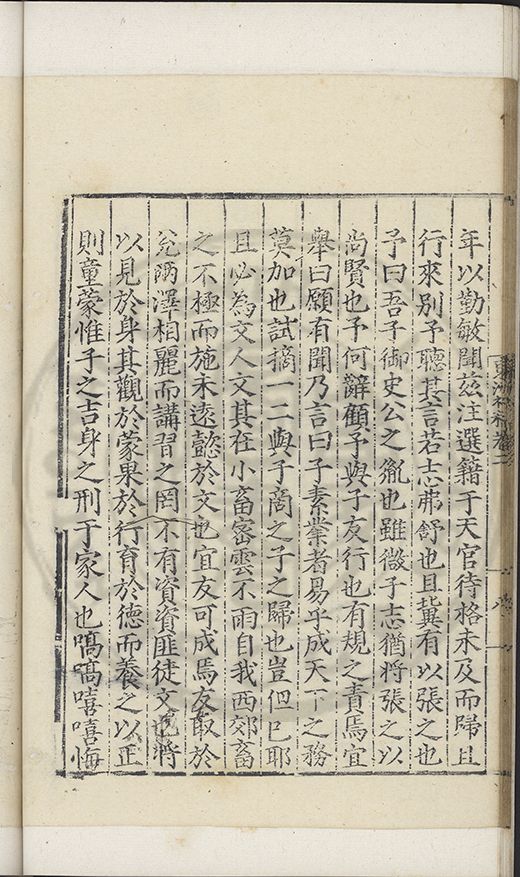 年以勤敏聞兹注選籍于天官待格未及而歸且
行來別予聽其言若志弗舒也且兾有以張之也
予曰吾子御史公之胤也雖微子志猶將張之以
尚賢也予何辭顧予與子友行也有規之責焉宜
舉曰願有聞乃言曰子素業者易乎成天下之務
莫加也試摘一二與子商之子之歸也豈但已耶
且必為文人文其在小畜密雲不雨自我西郊畜
之不極而施未遠懿於文也宜友可成焉友取於
兌兩澤相麗而講習之罔不有資資匪徒文也將
以見於身其觀於蒙果於行育於德而養之以正
則童蒙惟子之吉身之刑于家人也嗃嗃嘻嘻悔